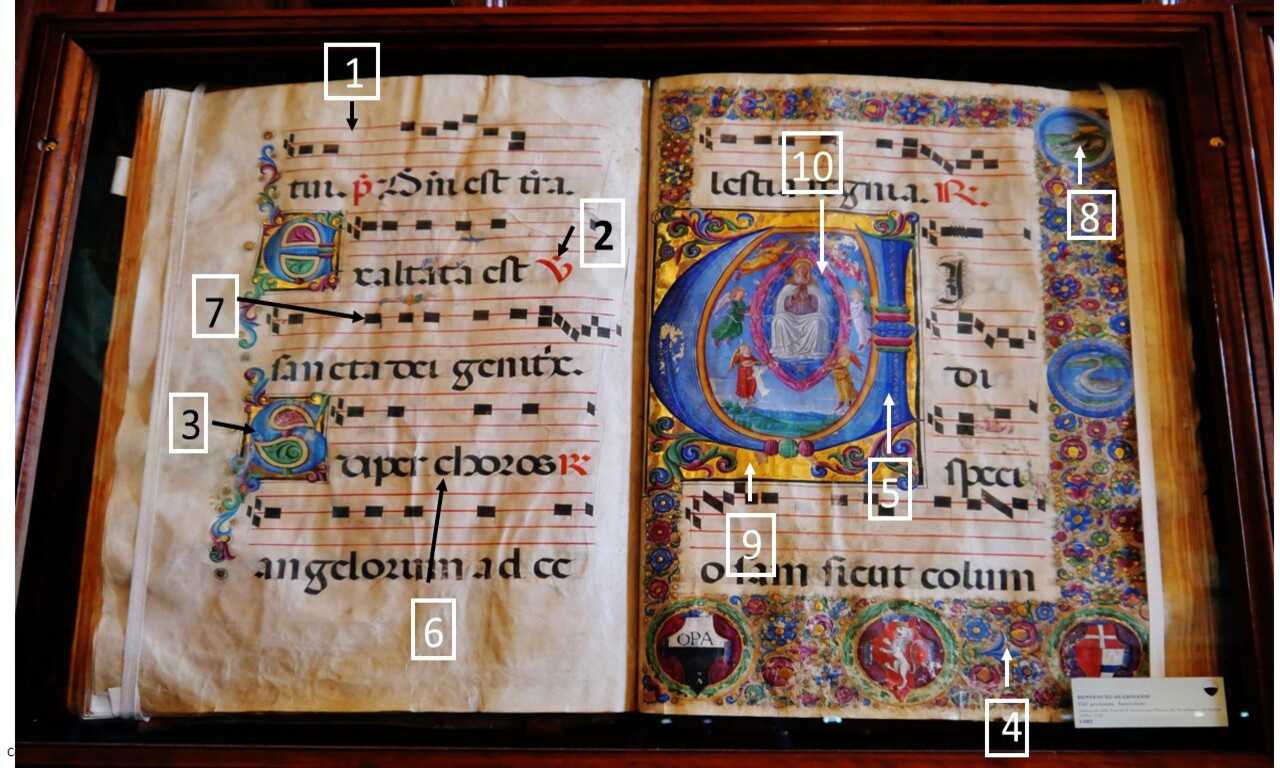 1
tui.
2
Exaltata est V
7
sancta dei genitx.
3
Super choros R
angelorum ad ce
6
10
lestia regna. R.
8
VI
di
5
speci
9
osam sicut colum
OPA
4
BENVENUTO DI GIOVANNI